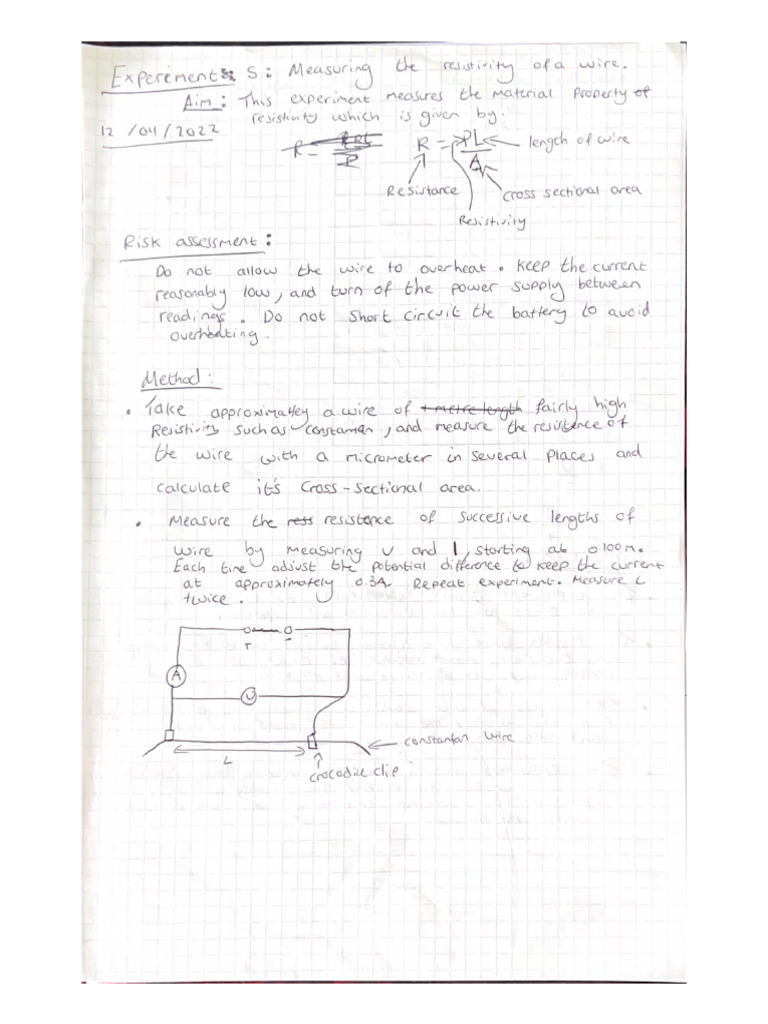 Experement 5: Measuring the resistivity of a wire.
Aim: This experiment measures the Material Property of
resistivity which is given by:
12/04/2022
R = PL/A
length of wire
Resistance
cross sectional area
Resistivity
Risk assessment:
Do not allow the wire to overheat. Keep the current
reasonably low, and turn of the power supply between
readings. Do not short circuit the battery to avoid
overheating.
Method:
• Take approximatley a wire of 1 metre length fairly high
Resistivity such as constantan, and measure the resistence of
the wire with a micrometer in several places and
calculate it's cross-sectional area.
• Measure the ress resistence of successive lengths of
wire by measuring V and I, starting at 0.100m.
Each time adjust the potential difference to keep the current
at approximately 0.3A. Repeat experiment. Measure L
twice.
+ -
A
V
constantan wire
L
crocodile clip